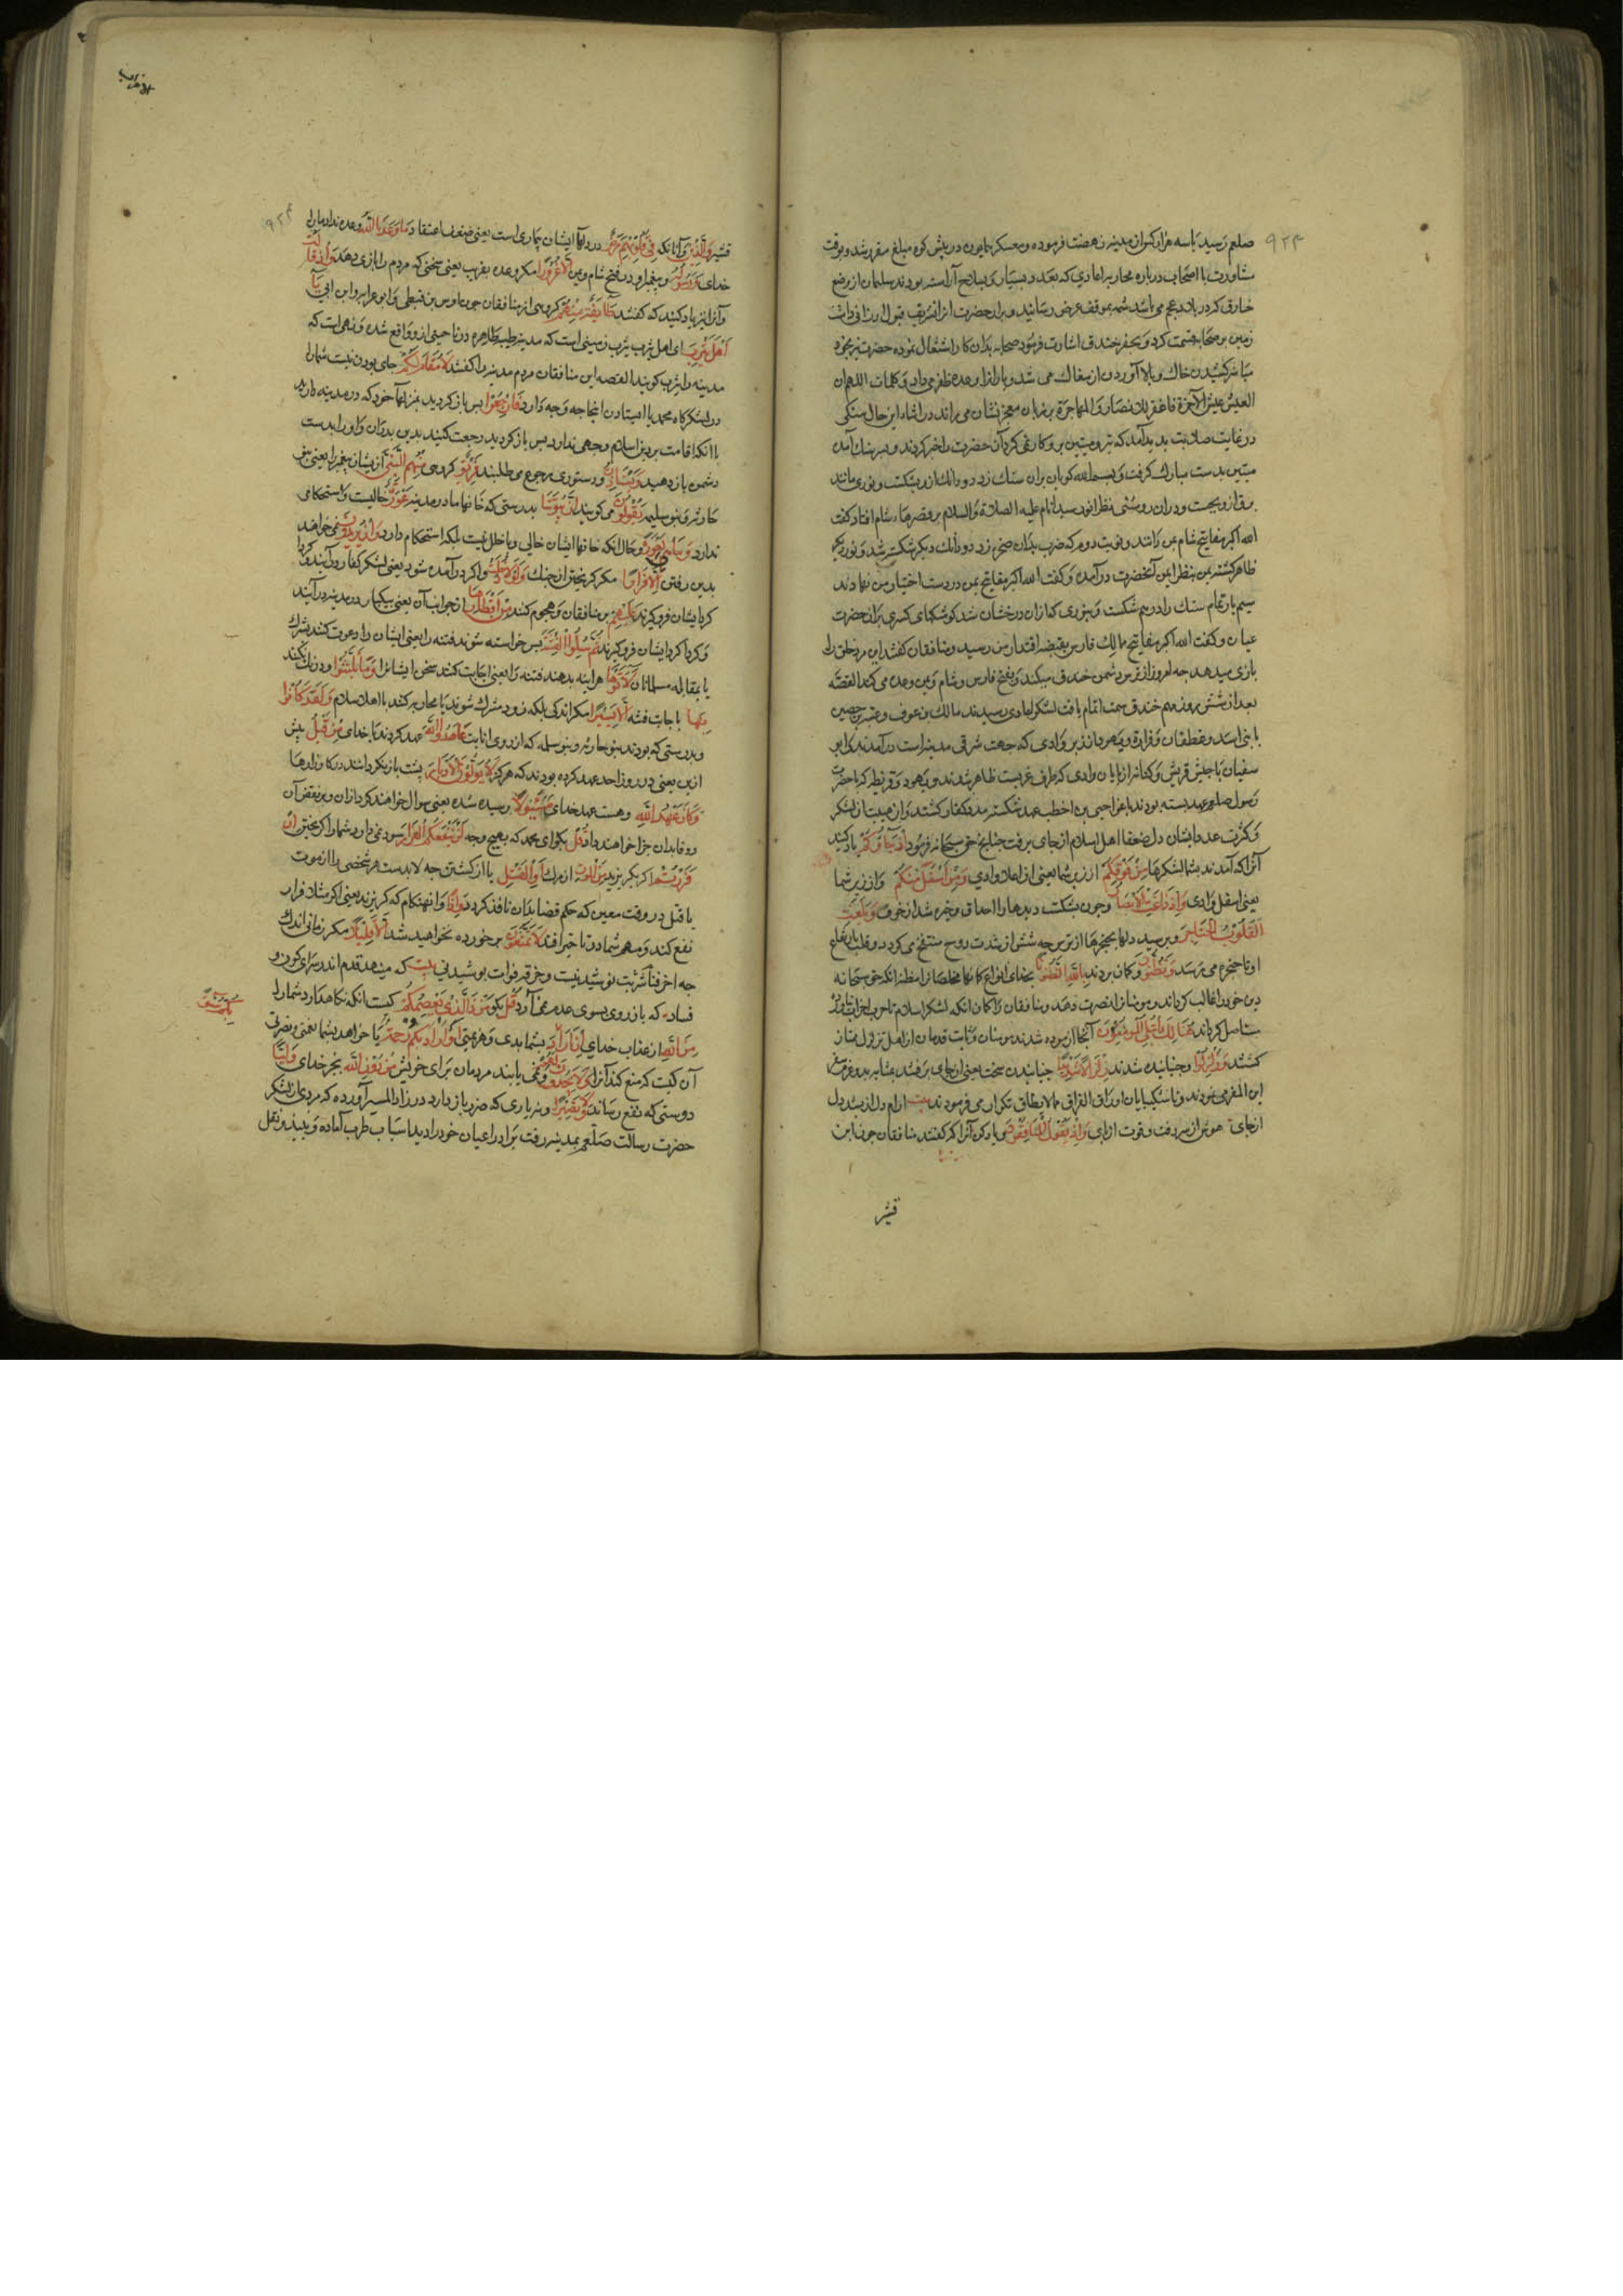 ۹۲۳
صلعم رسید با سه هزار کس از مدینه نهضت فرموده و معسکر همایون در پیش کوه مبلغ مقرر شد و بوقت
مشاورت با اصحاب درباره محاربه اعادی که بعدد بسیار و بسلاح آراسته بودند سلمان از وضع
خندق که در بلاد عجم می باشد شمه بموقف عرض رسانید و بران حضرت
زمین بر صحابه قسمت کرد و بحفر خندق اشارت فرمود صحابه بدان کار اشتغال نموده حضرت نیز بخود
مباشر کشیدن خاک و بالا آوردن از مغاک می شد و یارانرا وعده ظفر می داد و کلمات اللهم ان
العیش عیش الآخرة فاغفر للانصار و المهاجرة بر زبان معجز نشان می راند در اثناء این حال سنگی
در غایت صلابت پدید آمد که تبر و میتین برو کار نمی کرد آن حضرت را خبر کردند و بر سر سنک آمد
میتین بدست مبارک گرفت و بسم الله کویان بران سنک زد و دو دانک ازو بشکست و نوری مانند
برق ازو بجست و دران روشنی نظر انور سید انام علیه الصلاة و السلام بر قصرهاء شام افتاد کفت
الله اکبر مفاتیح شام بمن دادند و نوبت دوم که ضرب بدان صخره زد دو دانک دیکر شکسته شد و نور دیکر
ظاهر کشته یمن بنظر ایمن آنحضرت درآمده و کفت الله اکبر مفاتیح یمن در دست اختیار من نهادند
سیم بار تمام سنک را درهم شکست و بنوری که ازان درخشان شد کوشکهای کسری بران حضرت
عیان و کفت الله اکبر مفاتیح ممالک فارس بقبضه اقتدار من رسید و منافقان کفتند این مرد خلق را
بازی میدهد چه امروز از ترس دشمن خندق میکند و بفتح فارس و شام و یمن وعده می کند القصه
بعد از شش روز مهم خندق سمت اتمام یافت لشکر اعادی رسیدند مالک بن عوف و عتبه بن حصین
با بنی اسد و غطفان و فزاره و یهود
سفیان با جیش قریش و کنانه از پایان وادی که طرف غربیست ظاهر شدند و یهود و قریظه که با حضرت
رسول صلعم عهد بسته بودند باغراء حیی بن اخطب عهد شکسته مدد کفار کشتند و از هیبت آن لشکر
و کثرت عدد ایشان دل ضعفاء اهل اسلام از جای برفت چنانچه حق سبحانه فرمود اذ جاؤکم یاد کنید
آنرا که آمدند بشما لشکرها من فوقکم از زبر شما یعنی از اعلاء وادی و من اسفل منکم و از زیر شما
یعنی اسفل وادی و اذ زاغت الابصار و چون بکشت دیدها را احداق و خیره شد از خوف و بلغت
القلوب الحناجر و برسید دلها بحنجرها از ترس چه شش از شدت روع منتفخ می کردد و قلب بارتفاع
او تا حنجره می رسد و تظنون و کمان بردند بالله الظنونا بخدای انواع کمانها مخلصانرا مظنه آنکه حق سبحانه
دین خود را غالب کرداند و مومنانرا نصرت دهد و منافقان را کمان آنکه لشکر اسلام تاب حرب احزاب نیاورد
مستاصل کرداند هنالک ابتلی المومنون آنجا آزموده شدند مومنان و ثابت قدمان از اهل تزلزل ممتاز
کشتند و زلزلوا و جنبانیده شدند زلزالا شدیدا جنبانیدن سخت یعنی از جای برفتند
این المفر می نمودند و ناشکیبایان اوراق الفراق مما لا یطاق تکرار می فرمودند بیت آرام دل از سینه دل
از جای هوش از سر رفت و قوت از پای و اذ یقول المنافقون و یاد کن آنرا که کفتند منافقان چون ابن
قشیر
الاحزاب
۹۲۴
قشیر و الذین و آنانکه فی قلوبهم مرض در دلهاء ایشان بیماری است یعنی ضعف اعتقاد ما وعدنا الله وعده نداد ما را
خدای و رسوله و پیغمبر او در فتح شام و یمن الا غرورا مکر وعده بفریب یعنی سخنی که مردم را بازی دهد و اذ قالت
و آنرا نیز یاد کنید که کفتند طائفة منهم کروهی از منافقان چون اوس بن قیظی و ابو عرابه و ابن ابی یا
اهل یثرب ای اهل یثرب یثرب زمینی است که مدینه طیبه طاهره در ناحیتی ازو واقع شده و نهی است که
مدینه را یثرب کویند القصه این منافقان مردم مدینه را کفتند لا مقام لکم جای بودن نیست شما را
در لشکرکاه محمد یا ایستادن اینجا چه وجه دارد فارجعوا پس باز کردید بمنزلهاء خود که در مدینه دارید
یا آنکه اقامت بر دین اسلام وجهی ندارد پس باز کردید رجعت کنید بدین پدران و او را بدست
دشمن باز دهید و یستاذن و دستوری رجوع می طلبند فریق کروهی منهم النبی از یشان پیغمبر را یعنی بنی
حارثه و بنو سلیمه یقولون می کویند ان بیوتنا بدرستی که خانهاء ما در مدینه عورة خالیست و استحکامی
ندارد و ما هی بعورة و حال آنکه خانهاء ایشان خالی و با خلل نیست بلکه استحکام دارد ان یریدون نمی خواهند
بدین رفتن الا فرارا مکر کریختن از جنک و لو دخلت و اکر درآمده شود یعنی لشکر کفار درآیند
کرد ایشان فرو کیرند علیهم بر منافقان و هجوم کنند من اقطارها از جوانب آن یعنی بیکبار در مدینه درآیند
و کرداکرد ایشان فرو کیرند ثم سئلوا الفتنة پس خواسته شوند فتنه را یعنی ایشان را دعوت کنند بشرک
یا بمقابله مسلمانان لآتوها هراینه بدهند فتنه را یعنی اجابت کنند سخن ایشانرا و ما تلبثوا و درنک نکنند
بها باجابت فتنه الا یسیرا مکر اندکی بلکه زود مشرک شوند یا محاربه کنند با اهل اسلام و لقد کانوا
و بدرستی که بودند بنو حارثه و بنو سلمه که از روی انابت عاهدوا الله عهد کردند با خدای من قبل پیش
ازین یعنی در روز احد عهد کرده بودند که هرکز لا یولون الادبار پشت باز نکرداند در کارزارها
و کان عهد الله و هست عهد خدای مسئولا پرسیده شده یعنی سوال خواهند کرد ازان و بر نقض آن
و وفا بدان جزا خواهند داد قل بکو ای محمد که بهیچ وجه لن ینفعکم الفرار سود نمی دارد شما را کریختن ان
فررتم اکر بکریزید من الموت از مرک او القتل یا از کشتن چه لابدست هر شخصی را از موت
یا قتل در وقت معین که حکم قضا بدان نافذ کردد و اذا و آنهنکام که کریزند یعنی اکر مثلا فرار
نفع کند و مهم شما در تاخیر افتد لا تمتعون برخورده نخواهید شد الا قلیلا مکر زمانی اندک
چه آخر فنا شربت نوشیدنیست و خرقه فوات پوشیدنی بیت که مینهد قدم اندر سرای کون و
فساد که باز روی بسوی عدم نمی آرد قل بکو من ذا الذی یعصمکم کیست آنکه نکاه دارد شما را
من الله از عذاب خدای ان اراد بکم سوءا بشما بدی و هزیمتی او اراد بکم رحمة یا خواهد بشما نعمتی و نصرتی
آن کیست که منع کند آنرا و لا یجدون لهم و نمی یابند مردمان برای خویش من دون الله بجز خدای ولیا
دوستی که نفع رساند و لا نصیرا و نه یاری که ضرر باز دارد در زاد المسیر آورده که مردی از لشکر
حضرت رسالت صلعم بمدینه رفت برادر اعیانی خود را دید اسباب طرب آماده و نبیذ و نقل
بکم سوءا